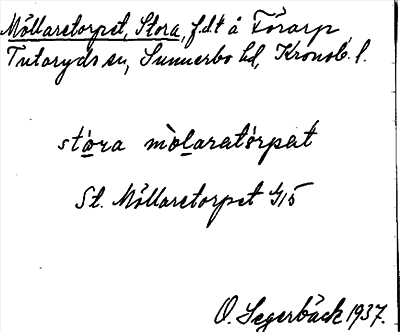 Möllaretorpet, Stora, f.d.t å Förarp,
Tutaryds sn, Sunnerbo hd, Kronob. l.
stóra mòlaratòrpat
St. Möllaretorpet G15
O. Segerbäck 1937.